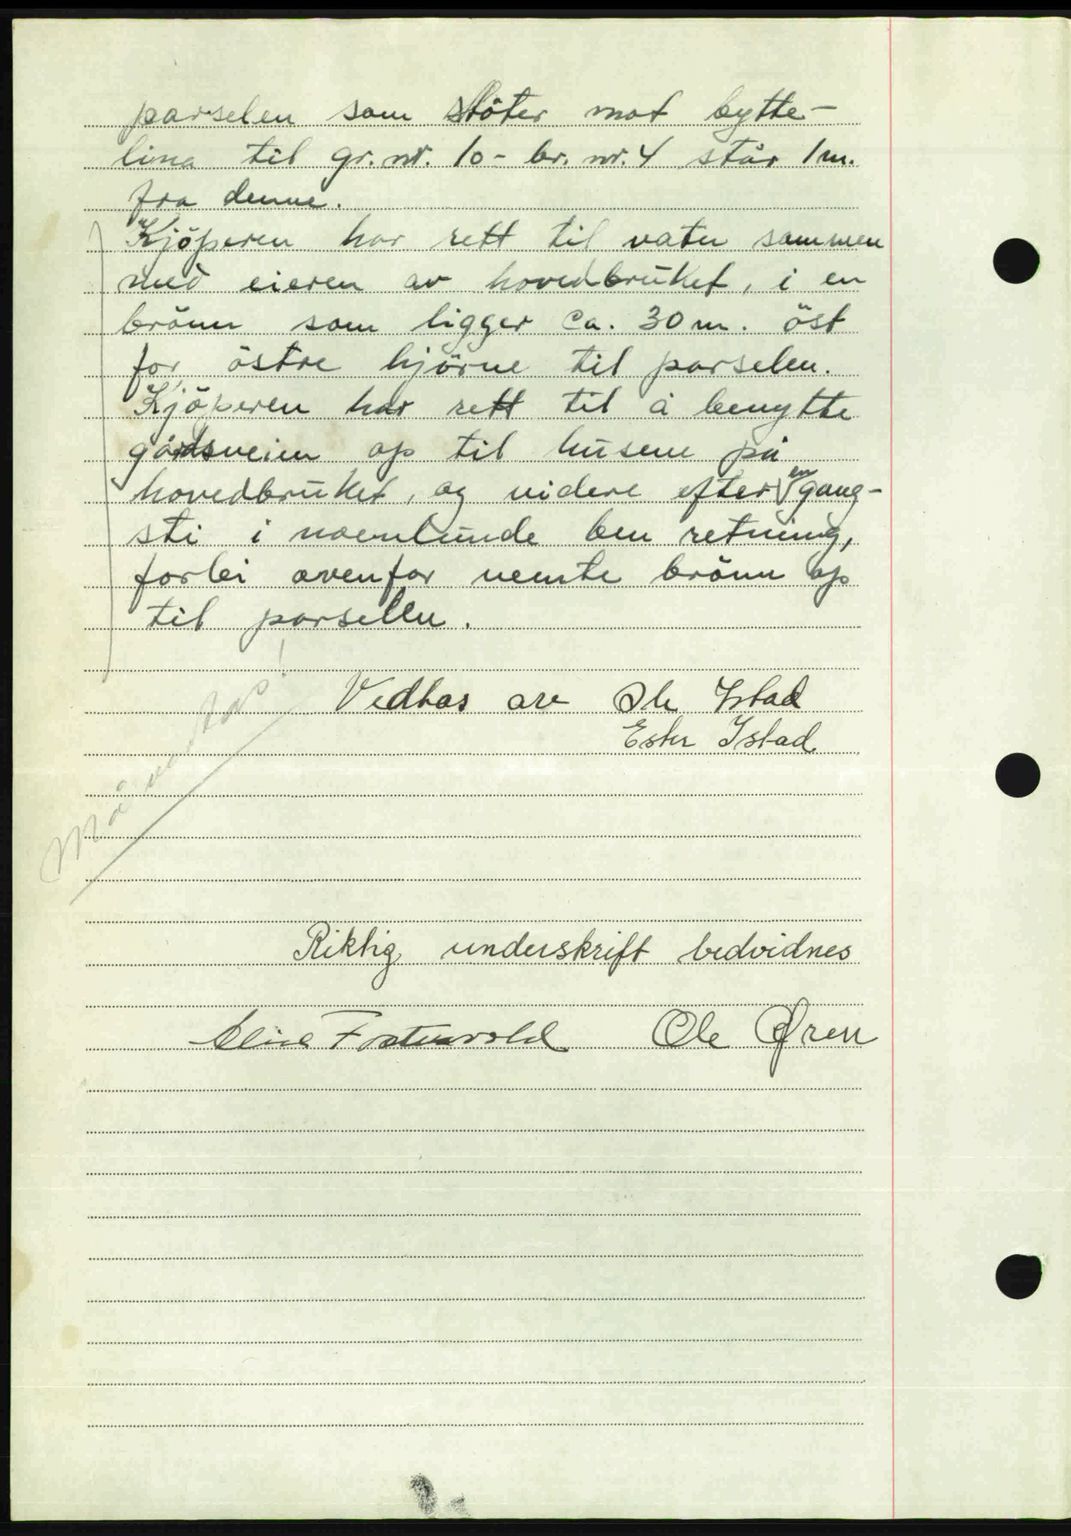 parselen som stöter mot bytte-
lina til gr. nr. 10 - br. nr. 4 står 1 m.
fra denne.
Kjöperen har rett til vatn sammen
med eieren av hovedbruket, i en
brönn som ligger ca. 30 m. öst
for östre hjörne til parselen.
Kjöperen har rett til å benytte
gårdsveien op til husene på
hovedbruket, og videre efter en gang-
sti i noenlunde ben retning,
forbi ovenfor nemte brönn op
til parsellen.
Må !
Vedtas av Ole Istad
Ester Istad
Riktig underskrift bedvidnes
Ole Øren